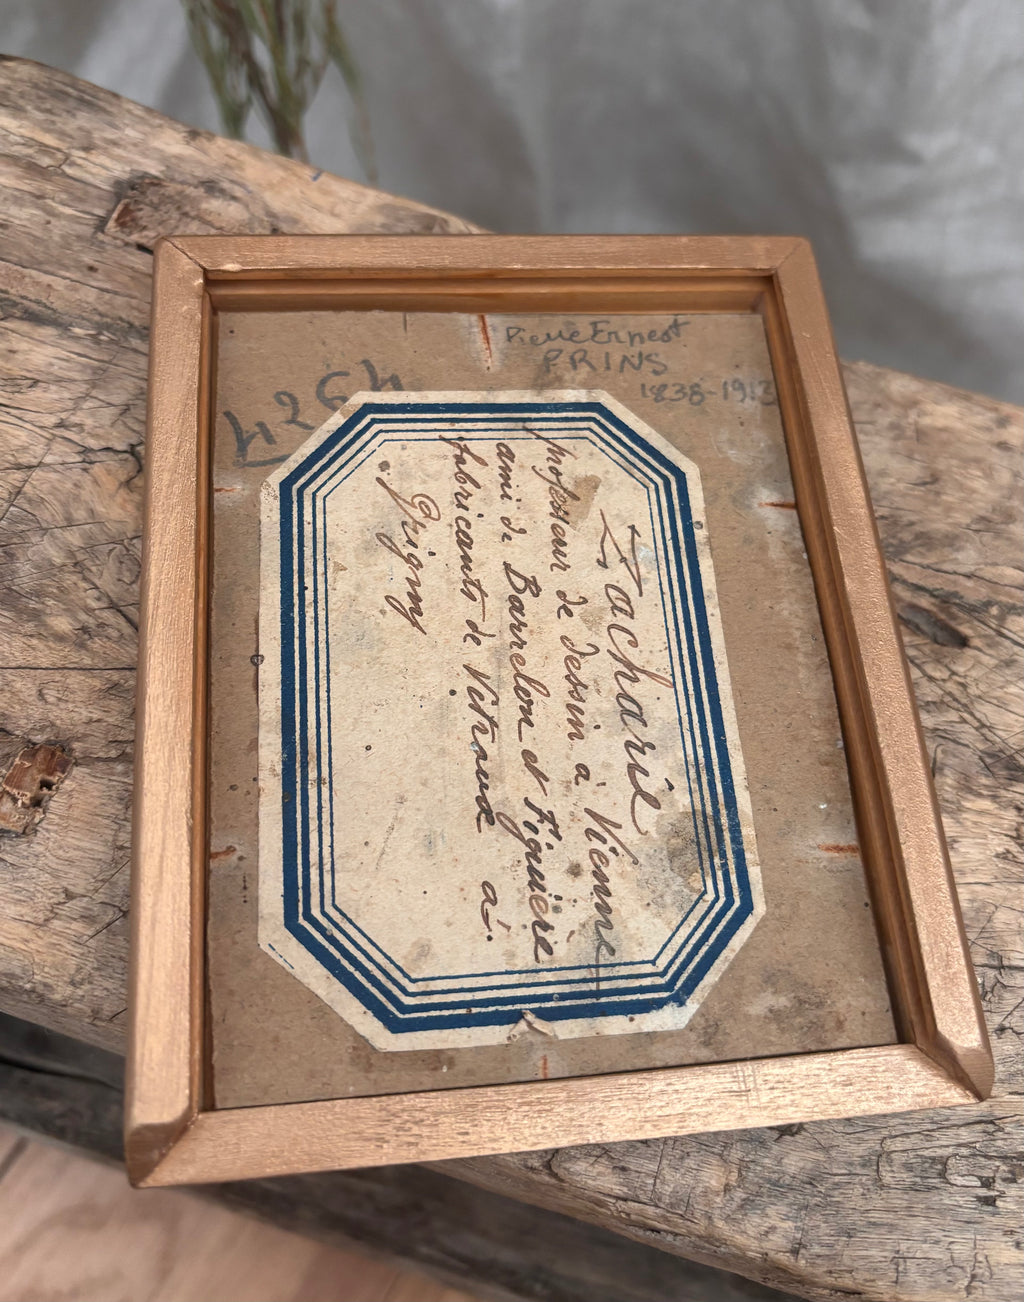 Pierre Ernest
PRINS
1838-1913
Zacharie
professeur de dessin à Vienne
ami de Barrelon et Figuière
fabricants de Vitraux à
Grigny